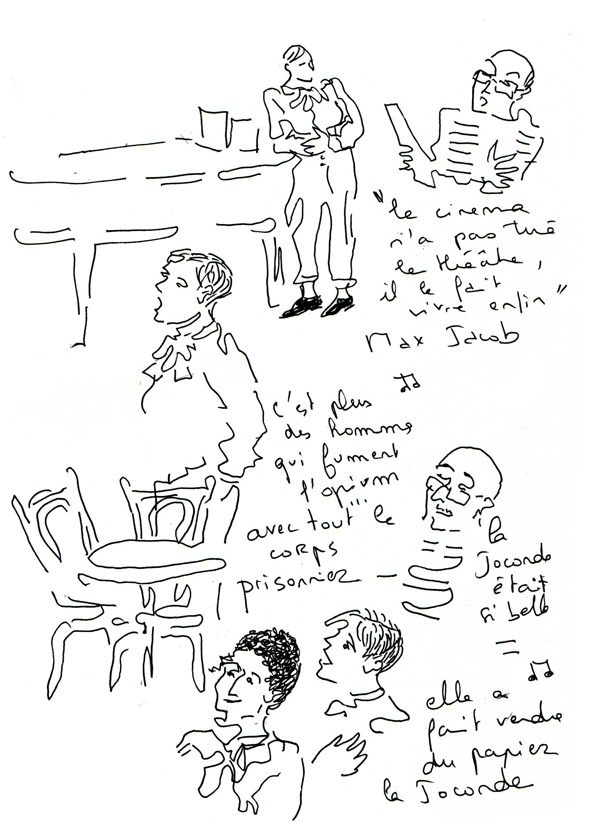 "le cinema
n'a pas tué
le théâtre,
il le fait
vivre enfin"
Max Jacob
c'est plus
des homme
qui fument
l'opium
avec tout le
corps
prisonnier –
la
Joconde
était
si belle
elle a
fait vendre
du papier
la Joconde